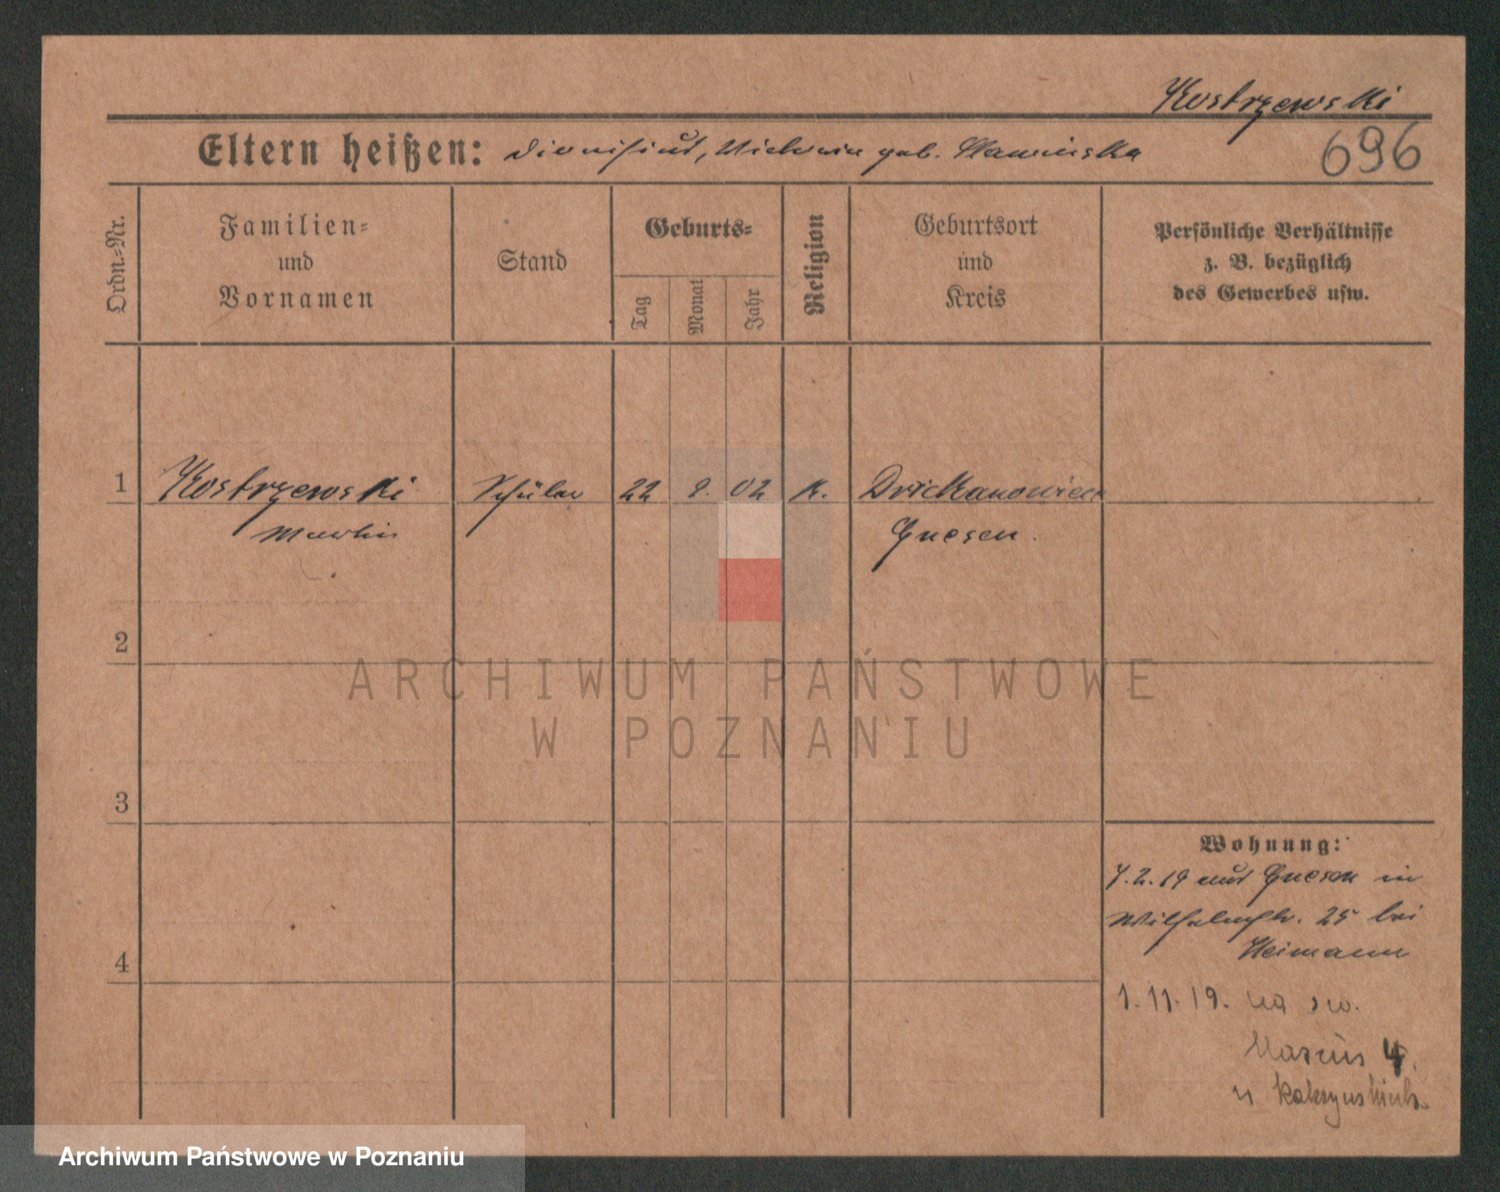 Kostrzewski
696
Eltern heißen: Dionisius, Victoria geb. Slawinska
Ordn.-Nr.
Familien-
und
Vornamen
Stand
Geburts-
Tag
Monat
Jahr
Religion
Geburtsort
und
Kreis
Persönliche Verhältnisse
z. B. bezüglich
des Gewerbes usw.
1 Kostrzewski Schüler 22 9. 02 K.
Martin Gnesen.
2
ARCHIWUM PAŃSTWOWE
W POZNANIU
3
Wohnung:
7.2.19 aus Gnesen in
Wilhelmstr. 25 bei
Heimann
4
1.11.19. na św.
Marcin 4.
u
Archiwum Państwowe w Poznaniu